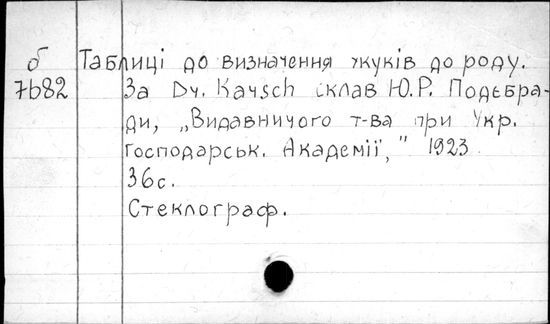 б Таблиці до визначення жуків до роду.
7b82 За Dr. Karsch склав Ю.Р. Подєбра-
ди, „Видавничого т-ва при Укр.
Господарськ. Академії," 1923
36с.
Стеклограф.